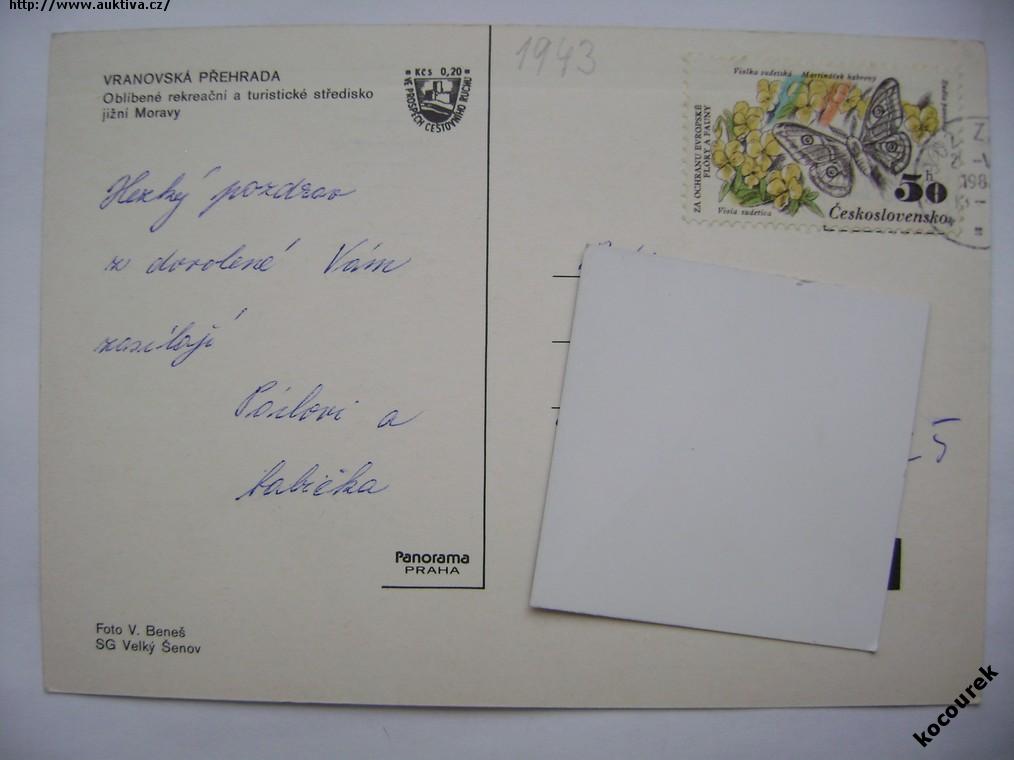 http://www.auktiva.cz/
VRANOVSKÁ PŘEHRADA
Oblíbené rekreační a turistické středisko
jižní Moravy
Kčs 0,20
VE PROSPĚCH CESTOVNÍHO RUCHU
Hezký pozdrav
z dovolené Vám
zasílají
a
babička
Panorama
PRAHA
Foto V. Beneš
SG Velký Šenov
1943
Violka sudetská Martináček habrový
ZA OCHRANU EVROPSKÉ
FLÓRY A FAUNY
50 h
Viola sudetica
Československo
198
5
kocourek